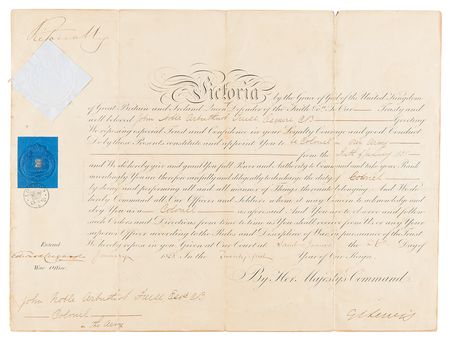 Victoria R
Victoria by the Grace of God of the United Kingdom
of Great Britain and Ireland Queen Defender of the Faith &c. To Our Trusty and
well beloved John Noble Arbuthnot Esquire CB Greeting
We reposing especial Trust and Confidence in your Loyalty Courage and good Conduct
Do by these Presents constitute and appoint You to be Colonel in Our Army
from the
and We do hereby give and grant You full Power and Authority to Command and take your Rank
accordingly You are therefore carefully and diligently to discharge the duty of Colonel
by doing and performing all and all manner of Things thereunto belonging And We do
hereby Command all Our Officers and Soldiers whom it may Concern to acknowledge and
obey You as a Colonel as aforesaid And You are to observe and follow
such Orders and Directions from time to time as You shall receive from Us or any Your
superior Officer according to the Rules and Discipline of War in pursuance of the trust
We hereby repose in you Given at Our Court at Saint James's the Day of
January 185 In the Year of Our Reign
Entered
War Office
By Her Majesty's Command
John Noble Arbuthnot Esqre CB
Colonel
in the Army
G C Lewis